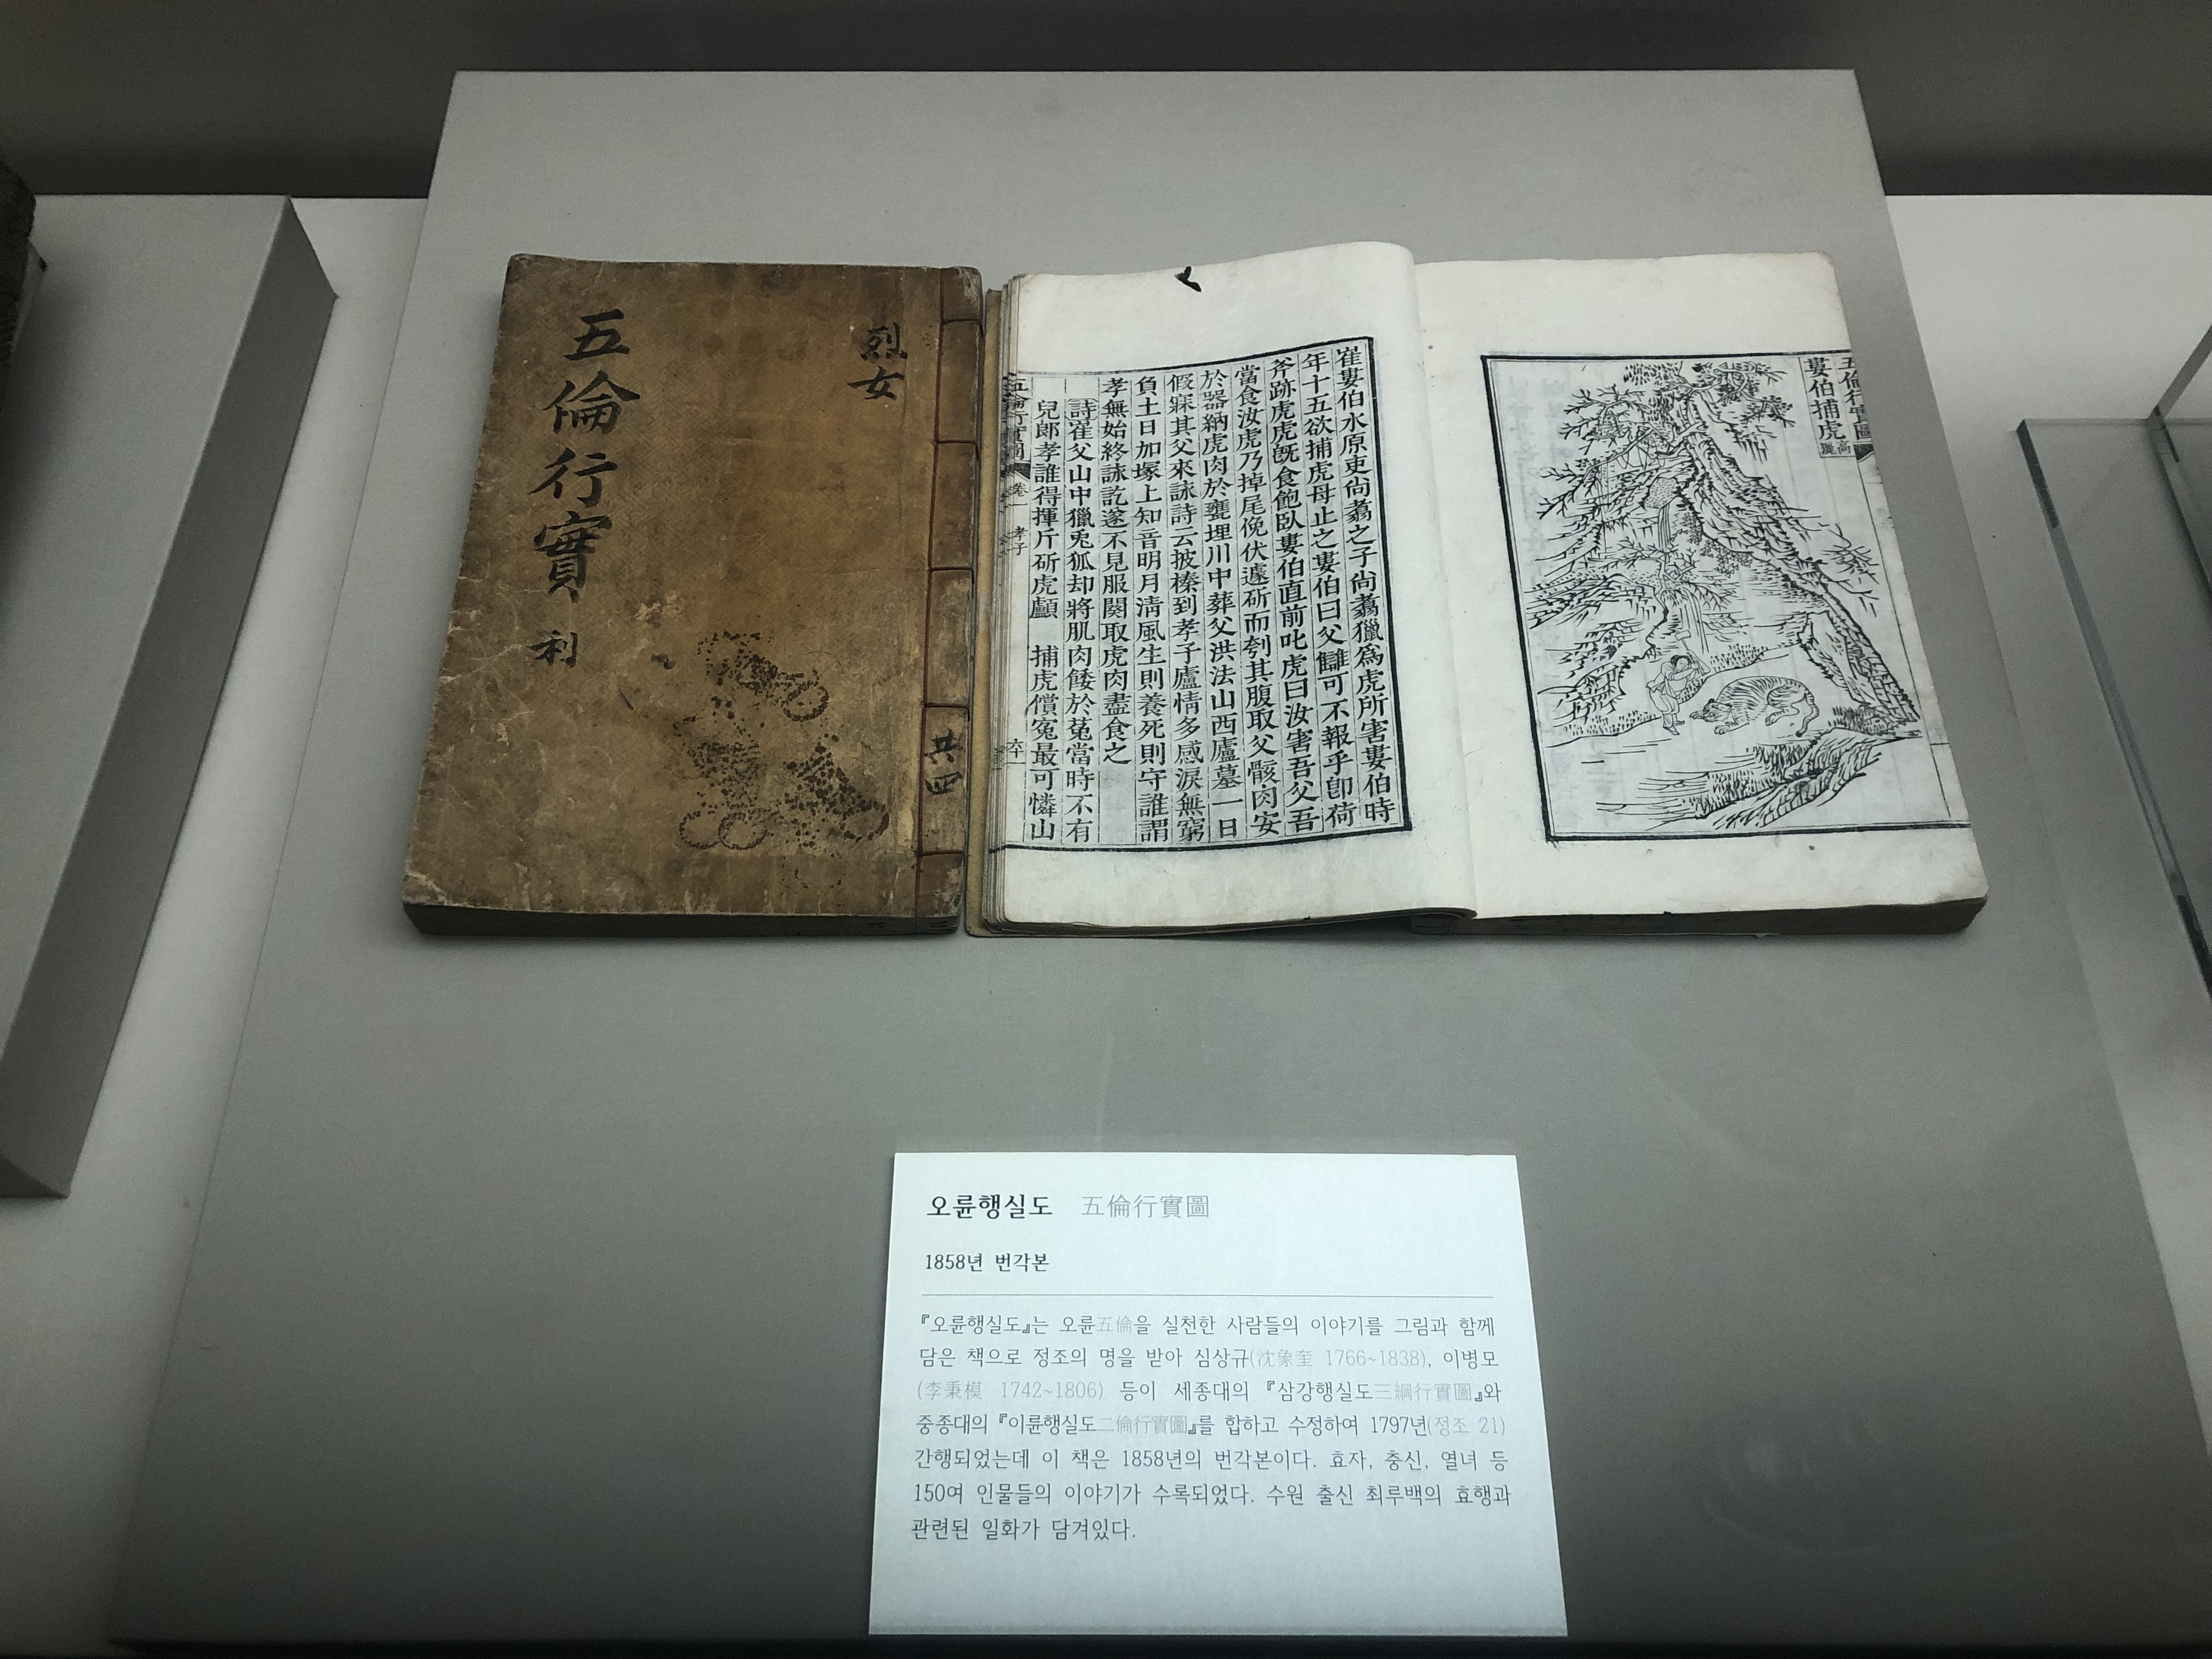 五倫行實 利
烈女
共四
五倫行實圖
婁伯捕虎 高麗
崔婁伯水原吏尙翥之子尙翥獵爲虎所害婁伯時
年十五欲捕虎母止之婁伯曰父讎可不報乎卽荷
斧跡虎虎旣食飽臥婁伯直前叱虎曰汝害吾父吾
當食汝虎乃掉尾俛伏遽斫而刳其腹取父骸肉安
於器納虎肉於甕埋川中葬父洪法山西廬墓一日
假寐其父來詠詩云披榛到孝子廬情多感淚無窮
負土日加塚上知音明月淸風生則養死則守誰謂
孝無始終詠訖遂不見服闋取虎肉盡食之
詩崔父山中獵兎狐却將肌肉餧於菟當時不有
兒郞孝誰得揮斤斫虎顱 捕虎償寃最可憐山
五倫行實圖 卷一 孝子 六十
오륜행실도 五倫行實圖
1858년 번각본
『오륜행실도』는 오륜五倫을 실천한 사람들의 이야기를 그림과 함께
담은 책으로 정조의 명을 받아 심상규(沈象奎 1766~1838), 이병모
(李秉模 1742~1806) 등이 세종대의 『삼강행실도三綱行實圖』와
중종대의 『이륜행실도二倫行實圖』를 합하고 수정하여 1797년(정조 21)
간행되었는데 이 책은 1858년의 번각본이다. 효자, 충신, 열녀 등
150여 인물들의 이야기가 수록되었다. 수원 출신 최루백의 효행과
관련된 일화가 담겨있다.